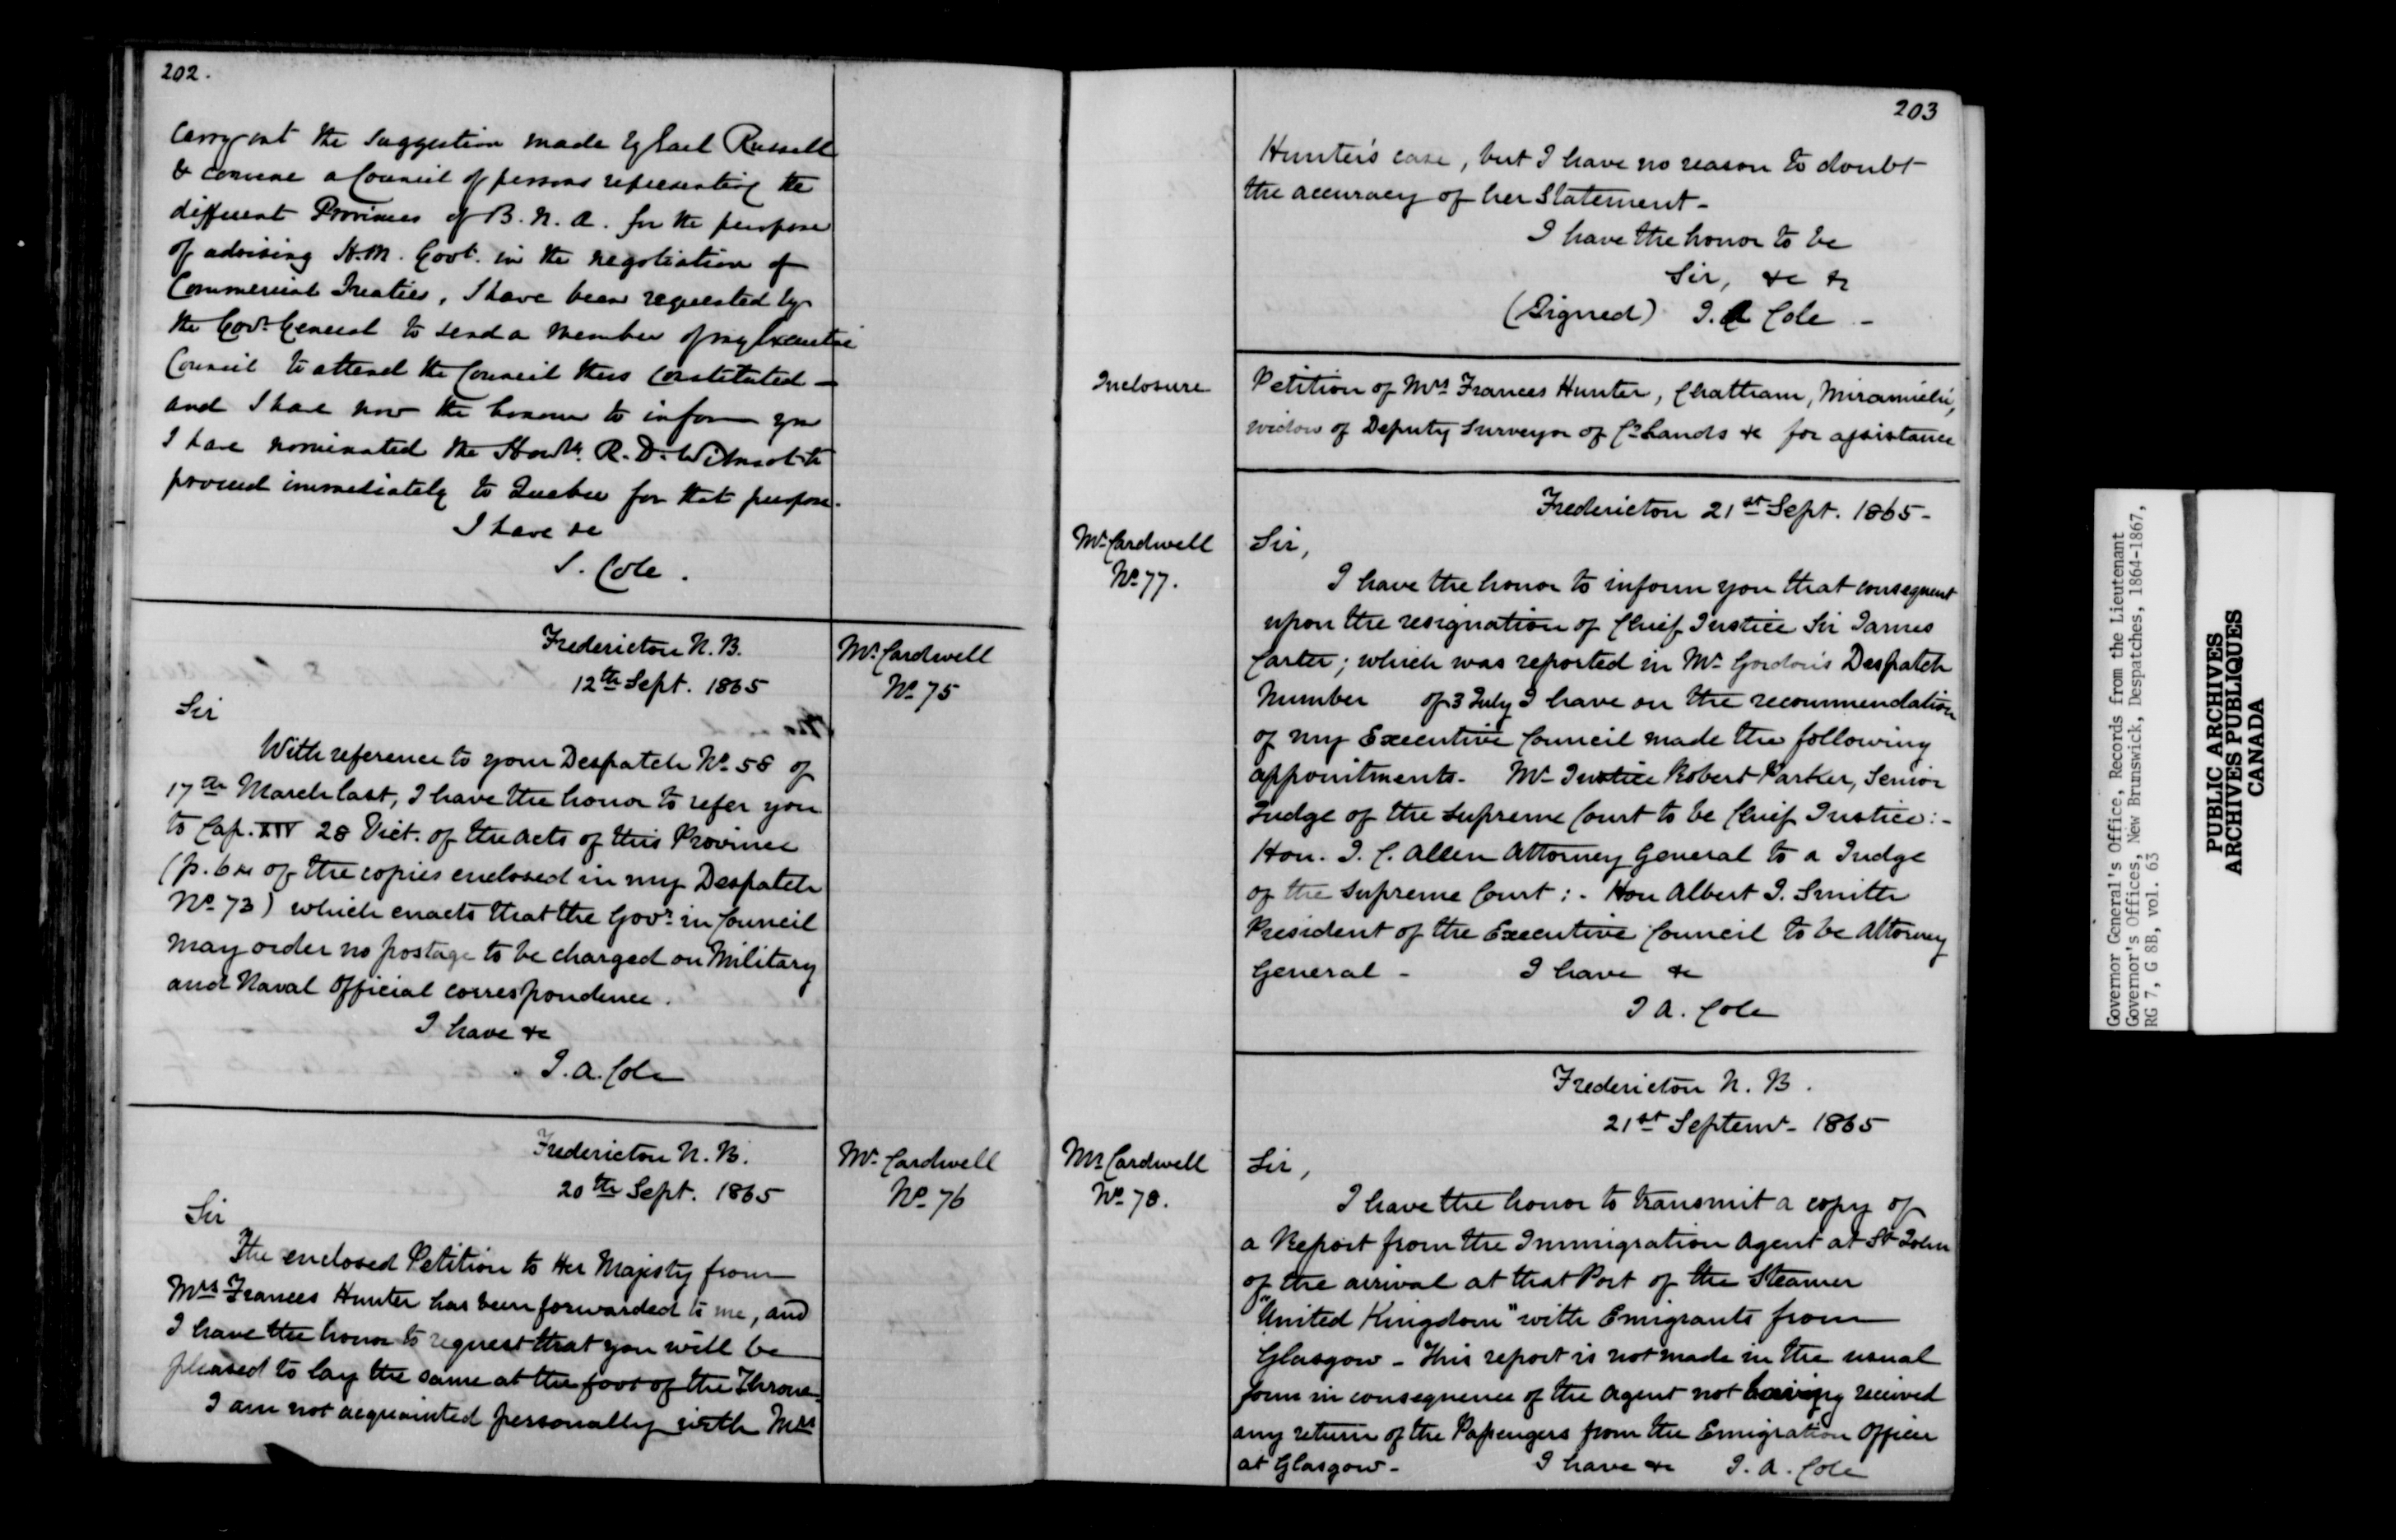 202.
Carry out the suggestion made by Earl Russell
& convene a Council of persons representing the
different Provinces of B. N. A. for the purpose
of advising H. M. Govt. in the negotiation of
Commercial Treaties, I have been requested by
the Govr. General to send a member of my Executive
Council to attend the Council thus constituted —
and I have now the honour to inform you
I have nominated the Honble. R. D. Wilmot to
proceed immediately to Quebec for that purpose.
I have &c
J. Cole.
Fredericton N. B.
12th Sept. 1865
Mr. Cardwell
No. 75
Sir
With reference to your Despatch No. 58 of
17th March last, I have the honor to refer you
to Cap. XIV 28 Vict. of the Acts of this Province
(p. 64 of the copies enclosed in my Despatch
No. 73) which enacts that the Govr. in Council
may order no postage to be charged on Military
and Naval Official correspondence.
I have &c
J. A. Cole
Fredericton N. B.
20th Sept. 1865
Mr. Cardwell
No. 76
Sir
The enclosed Petition to Her Majesty from
Mrs Frances Hunter has been forwarded to me, and
I have the honor to request that you will be
pleased to lay the same at the foot of the Throne.
I am not acquainted personally with Mrs
203
Hunter's case, but I have no reason to doubt
the accuracy of her Statement -
I have the honor to be
Sir, &c &c
(Signed) J. A Cole -
Inclosure
Petition of Mrs Frances Hunter, Chatham, Miramichi,
widow of Deputy Surveyor of Cn. Lands &c for assistance
Fredericton 21st Sept. 1865 -
Mr. Cardwell
No. 77.
Sir,
I have the honor to inform you that consequent
upon the resignation of Chief Justice Sir James
Carter; which was reported in Mr. Gordon's Despatch
Number of 3 July I have on the recommendation
of my Executive Council made the following
appointments - Mr. Justice Robert Parker, Senior
Judge of the Supreme Court to be Chief Justice: -
Hon. J. C. Allen Attorney General to a Judge
of the Supreme Court: - Hon Albert J. Smith
President of the Executive Council to be Attorney
General - I have &c
J A. Cole
Fredericton N. B.
21st Septemr. 1865
Mr Cardwell
No. 78.
Sir,
I have the honor to transmit a copy of
a Report from the Immigration Agent at St John
of the arrival at that Port of the Steamer
"United Kingdom" with Emigrants from
Glasgow - This report is not made in the usual
form in consequence of the Agent not having received
any return of the Passengers from the Emigration Officer
at Glasgow - I have &c J. A. Cole
Governor General's Office, Records from the Lieutenant
Governor's Offices, New Brunswick, Despatches, 1864-1867,
RG 7, G 8B, vol. 63
PUBLIC ARCHIVES
ARCHIVES PUBLIQUES
CANADA